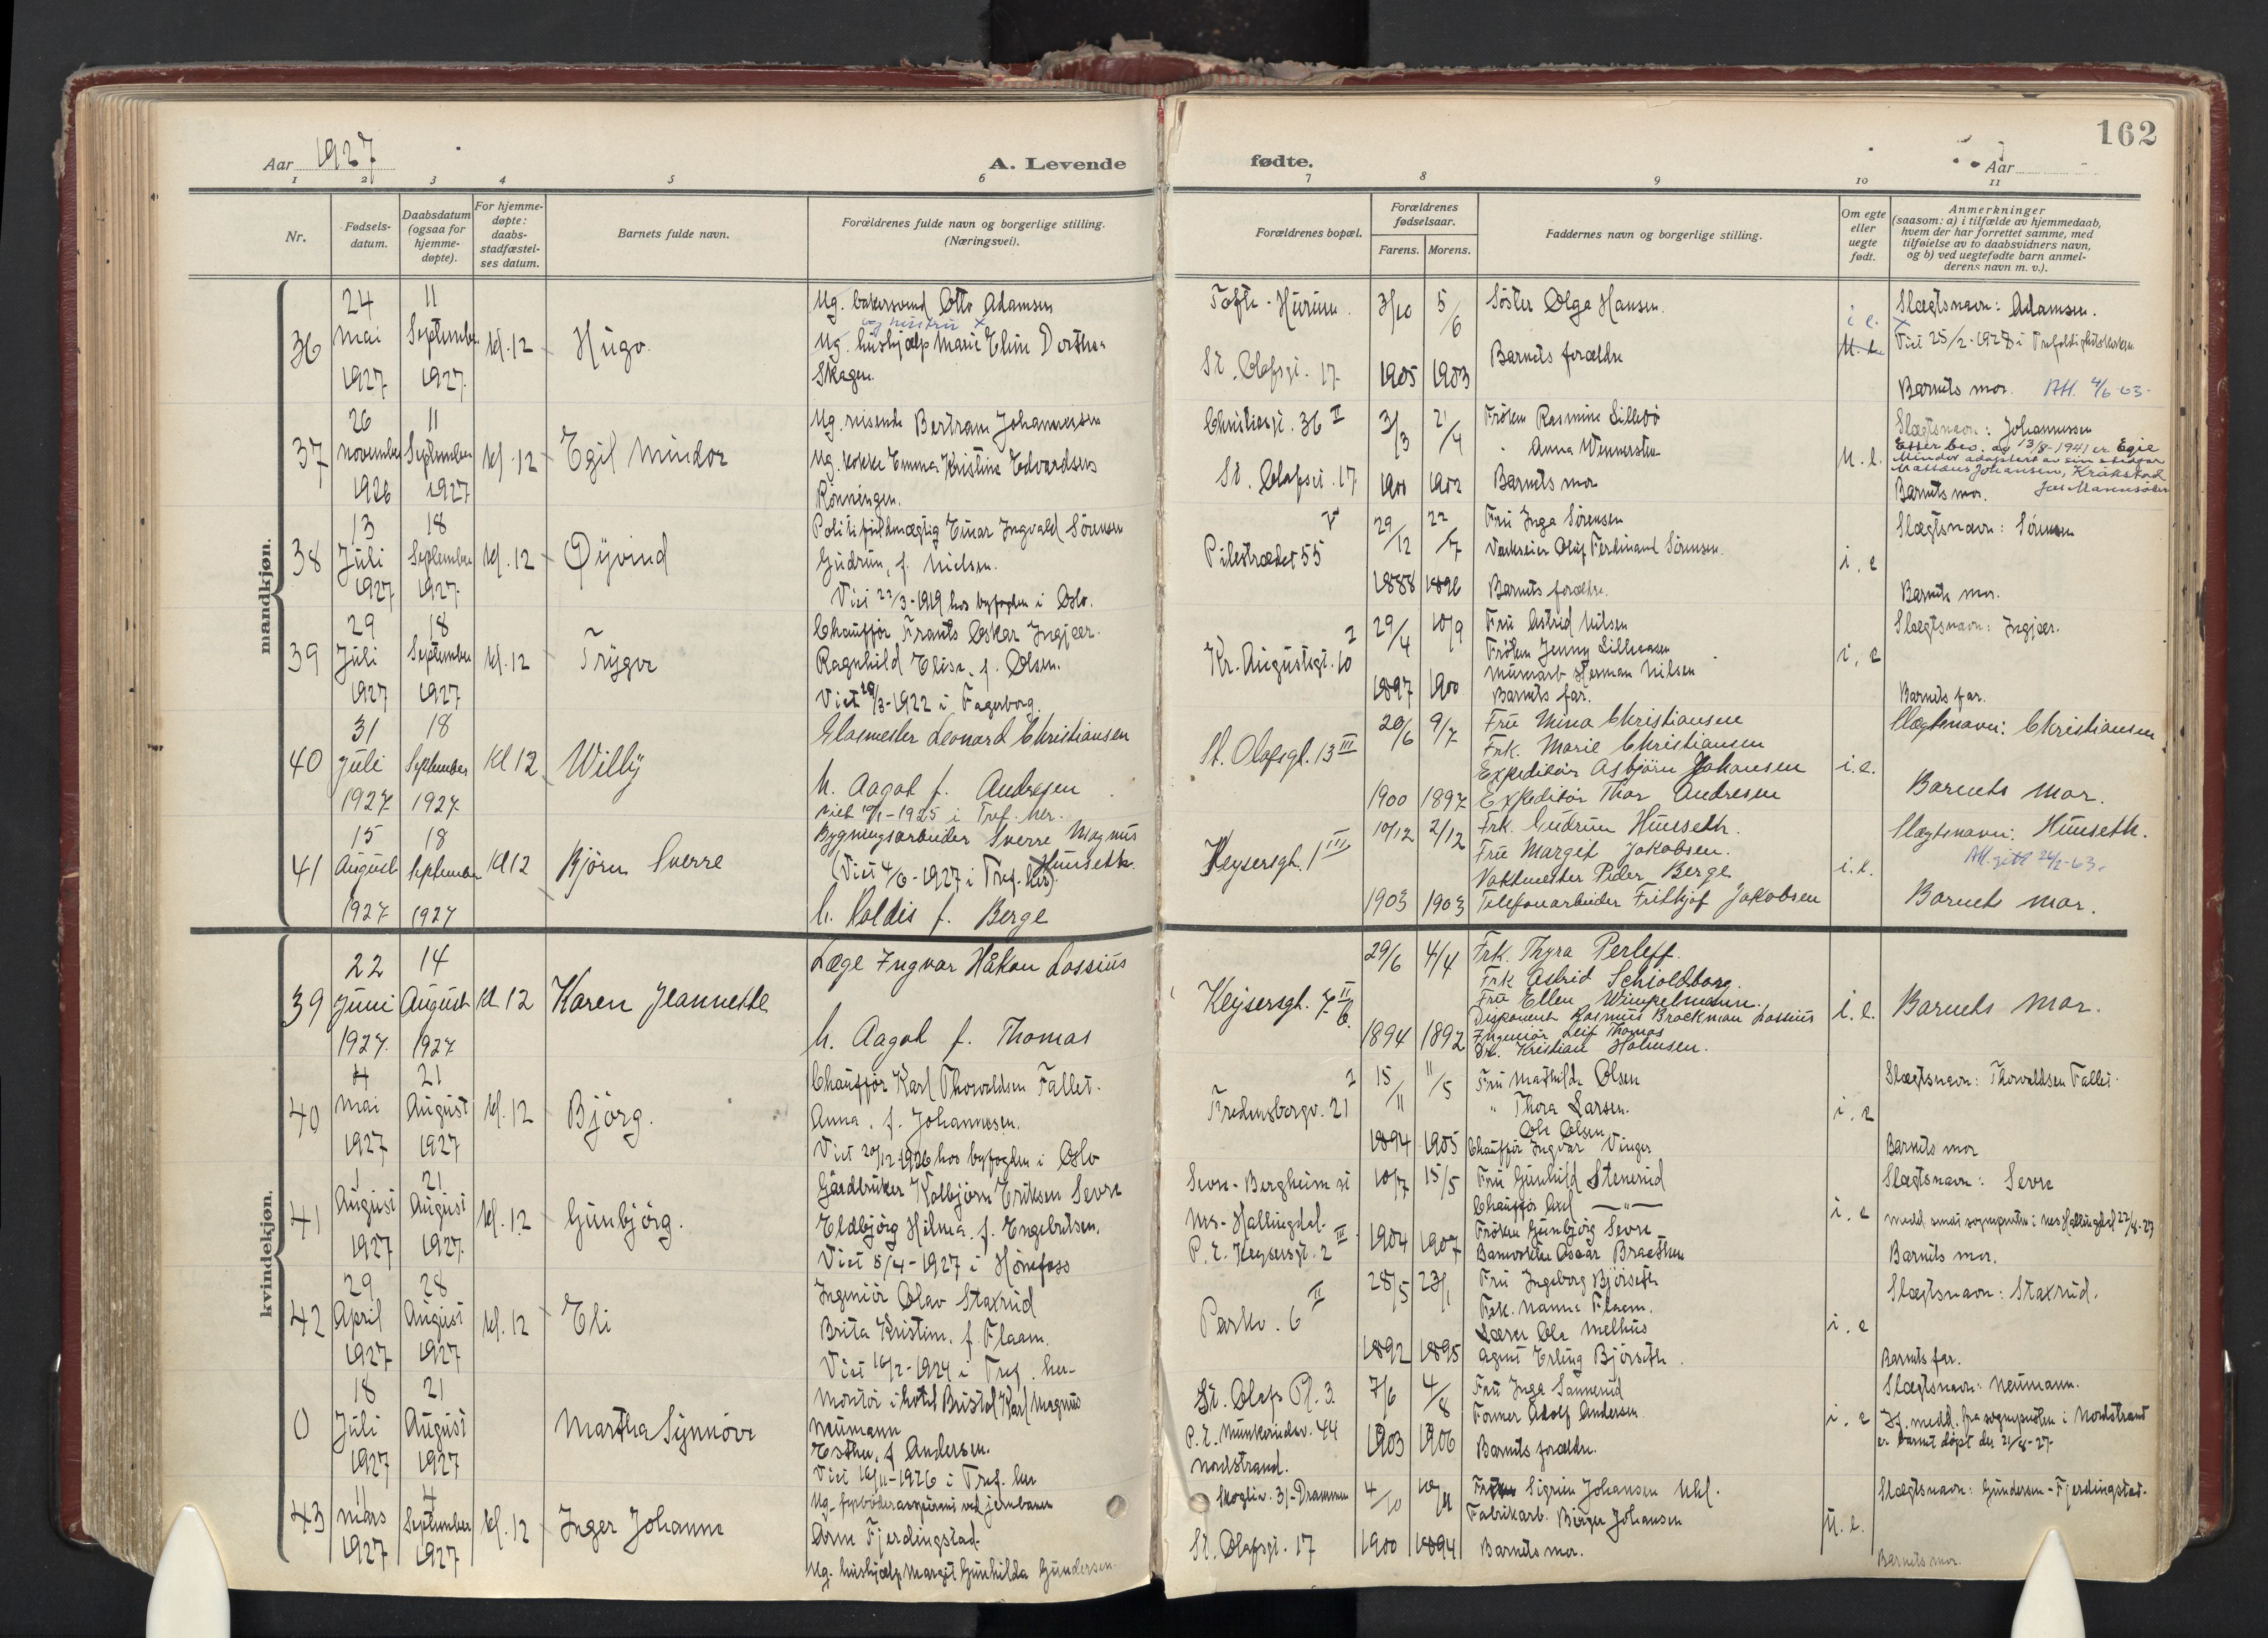 162
Aar 1927
A. Levende
fødte.
Aar
1 2 3 4 5 6 7 8 9 10 11
Nr.
Fødsels-
datum.
Daabsdatum
(ogsaa for
hjemme-
døpte).
For hjemme-
døpte:
daabs-
stadfæstel-
ses datum.
Barnets fulde navn.
Forældrenes fulde navn og borgerlige stilling.
(Næringsvei).
Forældrenes bopæl.
Forældrenes
fødselsaar.
Farens. Morens.
Faddernes navn og borgerlige stilling.
Om egte
eller
uegte
født.
Anmerkninger
(saasom: a) i tilfælde av hjemmedaab,
hvem der har forrettet samme, med
tilføielse av to daabsvidners navn,
og b) ved uegtefødte barn anmel-
derens navn m. v.).
mandkjøn.
36
24
mai
1927
11
September
1927
kl. 12
Hugo.
Ug. bakersvend Otto Adamsen
og hustru x
Ug. hushjælp Marie Eline Dorthea
Skagen.
Tofte - Hurum.
St. Olafsgt. 17
3/10
1905
5/6
1903
Søster Olga Hansen.
Barnets forældre
i e.
u. e.
Slægtsnavn: Adamsen.
x Viet 25/2-1928 i Trefoldighetskirken
Barnets mor. Att. 4/6-63.
37
26
november
1926
11
September
1927
kl. 12
Egil Mindor
Ug. reisende Bertram Johannessen
Ug. kokke Emma Kristine Edvardsens
Rønningen.
Christiesgt. 36 II
St. Olafsgt. 17
3/3
1900
21/4
1902
Frøken Rasmine Sillebø
" Anna Wennersten
Barnets mor
u. e.
Slægtsnavn: Johannessen
Efter bev. av 13/8-1941 er Egil
Mindor adoptert av sin stefar
Johansen, Kråkstad
Barnets mor.
38
13
Juli
1927
18
September
1927
kl. 12
Øyvind
Politifuldmægtig Einar Ingvald Sørensen
Gudrun, f. Nielsen.
Viet 22/3-1919 hos byfogden i Oslo.
Pilestrædet 55 V
29/12
1888
22/7
1896
Fru Inga Sørensen
Verkseier Oluf Ferdinand Sørensen.
Barnets forældre.
i. e
Slægtsnavn: Sørensen
Barnets mor.
39
29
Juli
1927
18
September
1927
kl. 12
Trygve
Chauffør Frants Oskar Ingjær.
Ragnhild Elise, f. Olsen.
Viet 20/3-1922 i Fagerborg.
Kr. Augustsgt. 10 2
29/4
1897
10/9
1900
Fru Astrid Nilsen
Frøken Jenny Lillevasen
Murerarb Herman Nilsen
Barnets far.
i. e
Slægtsnavn: Ingjær.
Barnets far.
40
31
Juli
1927
18
September
1927
Kl 12
Willy
Glasmester Leonard Christiansen
h. Aagot f. Andresen
viet 10/1-1925 i Tref. her.
St. Olafsgt. 13 III
20/6
1900
9/7
1897
Fru Mina Christiansen
Frk. Marie Christiansen
Expeditør Asbjørn Johansen
Expeditør Thor Andresen
i. e.
Slægtsnavn: Christiansen
Barnets mor.
41
15
August
1927
18
September
1927
Kl 12
Bjørn Sverre
Bygningsarbeider Sverre Magnus
Hunseth.
(Viet 4/6-1927 i Tref. her).
h. Haldis f. Berge
Keysersgt. 1 III
10/12
1903
2/12
1903
Frk. Gudrun Hunseth.
Fru Margit Jakobsen.
Vaktmester Peder Berge
Telefonarbeider Frithjof Jakobsen
i. e.
Slægtsnavn: Hunseth.
Barnets mor.
kvindekjøn.
39
22
Juni
1927.
14
August
1927
Kl 12
Karen Jeannette
Læge Ingvar Håkon Lossius
h. Aagot f. Thomas
Keysersgt. 7 II b.
29/6
1894
4/4
1892
Frk. Thyra Perleff.
Frk Astrid Schioldborg.
Fru Ellen Wimpelmann.
Disponent Rasmus Brockman Lossius
Ingeniør Leif Thomas
Dr. Kristian Holmsen.
i. e.
Barnets mor.
40
4
mai
1927
21
August
1927
kl. 12
Bjørg.
Chauffør Karl Thorvaldsen Fallet.
Anna, f. Johannesen.
Viet 20/12-1926 hos byfogden i Oslo
Fredensborgv. 21 2
15/11
1894
11/5
1905
Fru Mathilde Olsen
" Thora Larsen.
Ole Olsen
Chauffør Ingvar Vinger
i. e
Slægtsnavn: Thorvaldsen Fallet.
Barnets mor
41
1
August
1927
21
August
1927.
kl. 12
Gunbjørg.
Gårdbruker Kolbjørn Eriksen Sevre
Eldbjørg Hilma, f. Engebretsen.
Viet 5/4-1927 i Hønefoss
Sevre - Bergheim st
Nes - Hallingdal.
P. t. Keysersgt. 2 III
10/7
1904
15/5
1907
Fru Gunhild Stenerud
Chauffør Axel — " —
Frøken Gunbjørg Sevre
Banevokter Oscar Braathen
i. e
Slægtsnavn: Sevre
medd. sognepresten i Nes Hallingdal 22/8-27
Barnets mor.
42
29
April
1927
28
August
1927
kl. 12
Eli
Ingeniør Olav Staxrud
Brita Kristine, f. Flaam.
Viet 16/2-1924 i Tref. her-
Parkv. 6 II
28/5
1892
23/1
1895
Fru Ingeborg Bjørseth
Frk. Nanna Flaam.
Lærer Ole Melhus
Agent Erling Bjørseth.
i. e
Slægtsnavn: Staxrud.
Barnets far.
0
18
Juli
1927
21
August
1927
Martha Synnøve
Montør i hotel Bristol Karl Magnus
Neumann
Esther, f Andersen.
Viet 16/11-1926 i Tref. her
St. Olafs Pl. 3.
P. t. Munkerudv. 44
Nordstrand.
7/6
1903
4/8
1906
Fru Inga Sannerud
Former Adolf Andersen
Barnets forældre.
i. e
Slægtsnavn: Neumann.
If. medd. fra sognepresten i Nordstrand
er barnet døpt der 21/8-27-
43
11
mars
1927
4
September
1927
kl. 12
Inger Johanne
Ug. fyrbøderaspirant ved jernbanen
Arne Fjerdingstad.
Ug. hushjælp Margit Gunhilda Gundersen
Skogliv. 31 - Drammen
St. Olafsgt. 17
4/10
1900
1894
Sigrun Johansen Uhl.
Fabrikarb. Birger Johansen
Barnets mor.
U. e.
Slægtsnavn: Gundersen - Fjerdingstad.
Barnets mor.